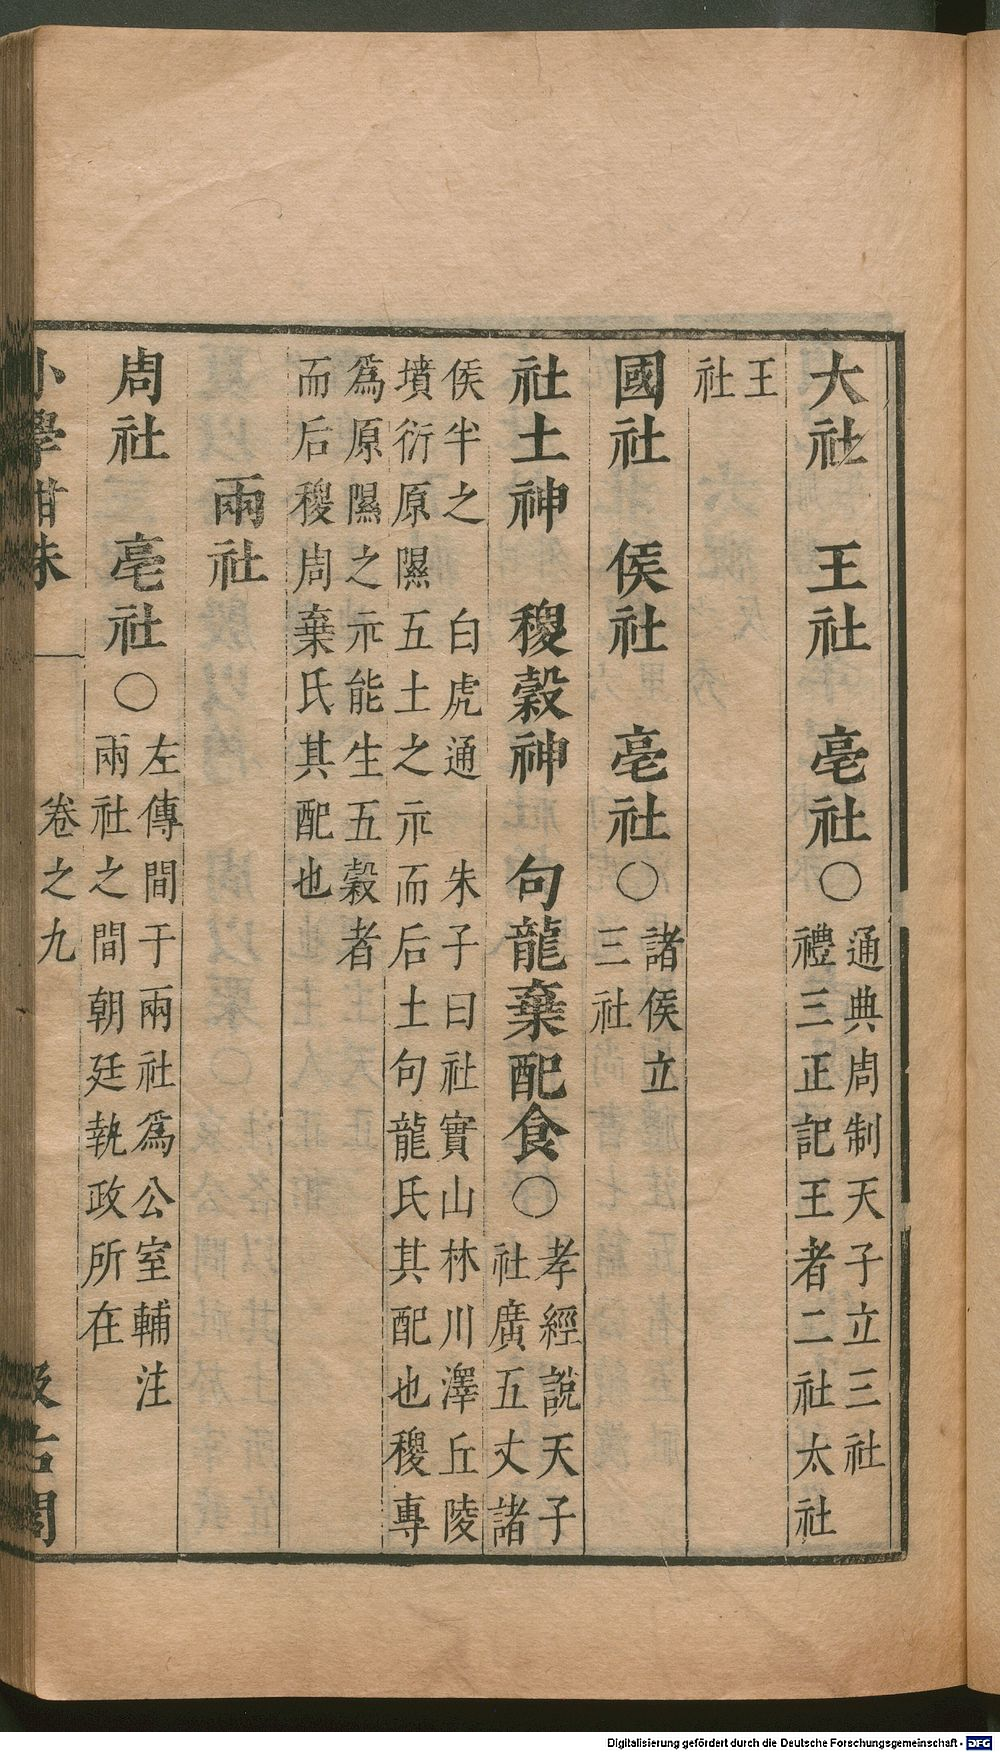 大社　王社　亳社〇通典周制天子立三社
禮三正記王者二社太社
王
社
國社　侯社　亳社〇諸侯立
三社
社土神　稷穀神　句龍棄配食〇孝經說天子
社廣五丈諸
侯半之　白虎通　朱子曰社實山林川澤丘陵
墳衍原隰五土之示而后土句龍氏其配也稷專
爲原隰之示能生五穀者
而后稷周棄氏其配也
兩社
周社　亳社〇左傳間于兩社爲公室輔注
兩社之間朝廷執政所在
小學紺珠　卷之九　汲古閣
Digitalisierung gefördert durch die Deutsche Forschungsgemeinschaft - DFG